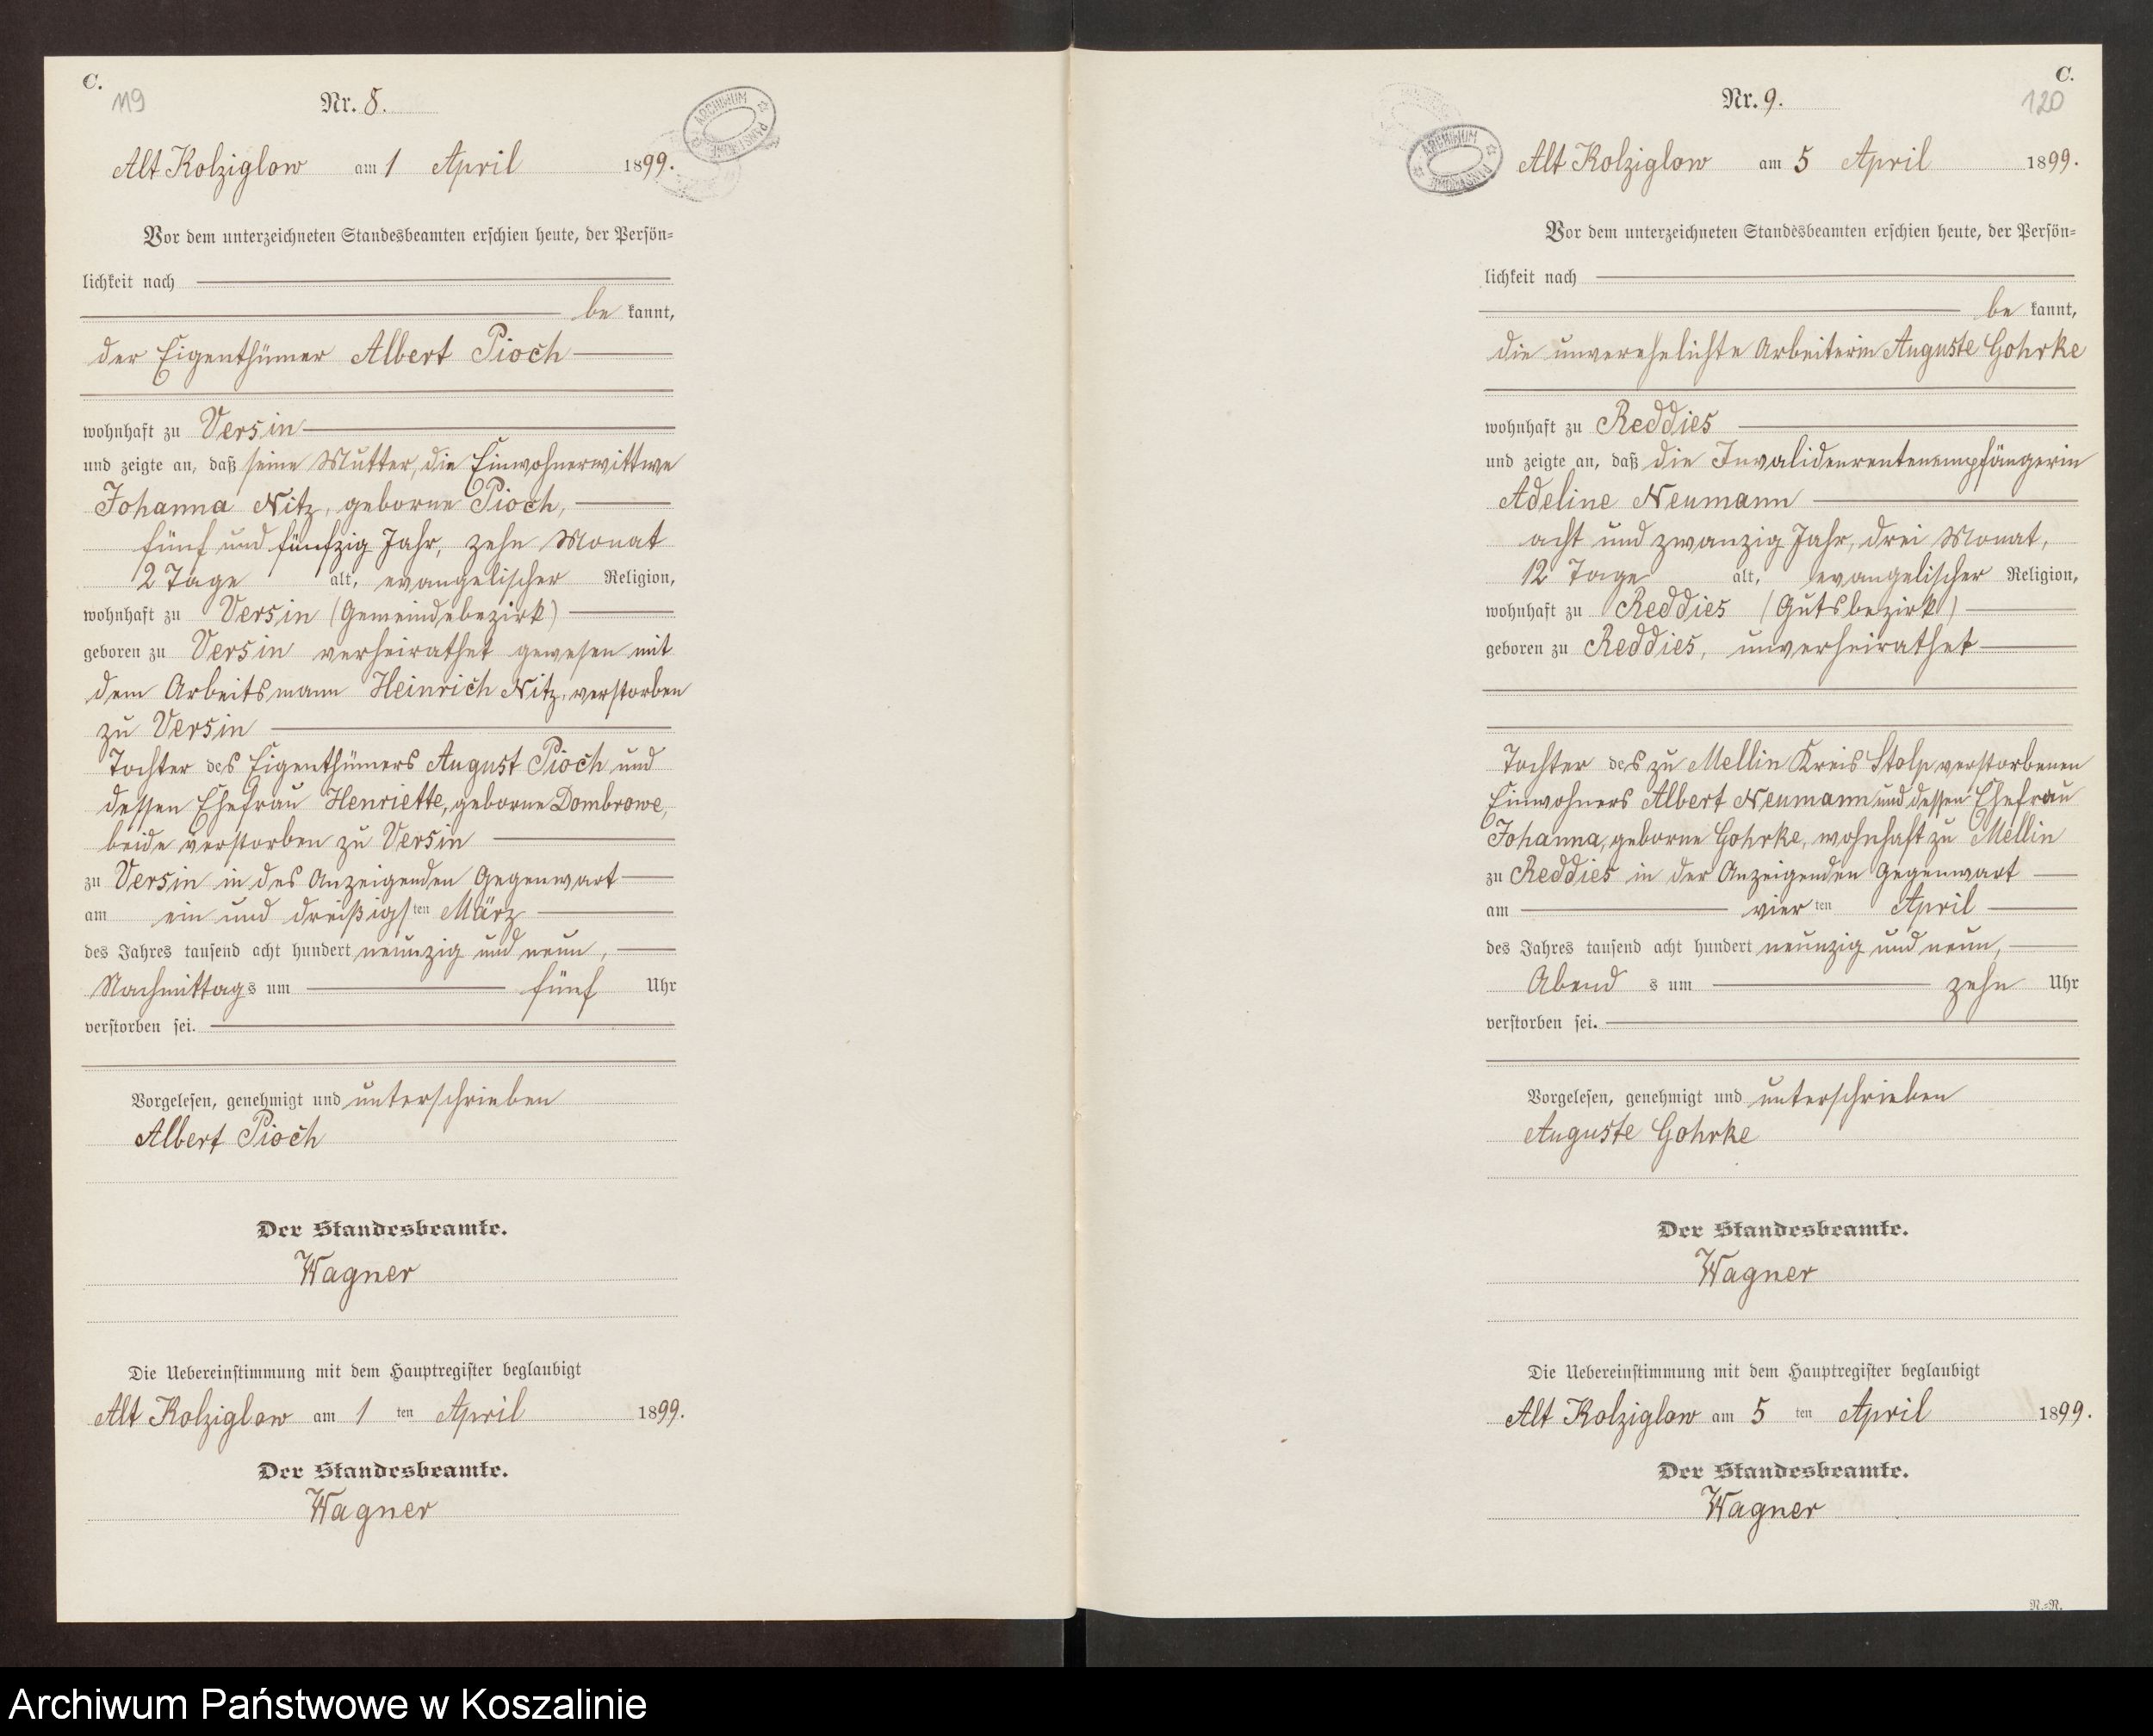 C.
119
Nr. 8.
ARCHIWUM PAŃSTWOWE
Alt Kolziglow am 1 April 1899.
Vor dem unterzeichneten Standesbeamten erschien heute, der Persön-
lichkeit nach
be kannt,
der Eigenthümer Albert Pioch
wohnhaft zu Versin
und zeigte an, daß seine Mutter, die Einwohnerwittwe
Johanna Nitz, geborne Pioch,
fünf und fünfzig Jahr, zehn Monat
2 Tage alt, evangelischer Religion,
wohnhaft zu Versin (Gemeindebezirk)
geboren zu Versin verheirathet gewesen mit
dem Arbeitsmann Heinrich Nitz, verstorben
zu Versin
Tochter des Eigenthümers August Pioch und
dessen Ehefrau Henriette, geborne Dombrowe,
beide verstorben zu Versin
zu Versin in des Anzeigenden Gegenwart
am ein und dreißigsten März
des Jahres tausend acht hundert neunzig und neun,
Nachmittags um fünf Uhr
verstorben sei.
Vorgelesen, genehmigt und unterschrieben
Albert Pioch
Der Standesbeamte.
Wagner
Die Uebereinstimmung mit dem Hauptregister beglaubigt
Alt Kolziglow am 1 ten April 1899.
Der Standesbeamte.
Wagner
C.
120
Nr. 9.
ARCHIWUM PAŃSTWOWE
Alt Kolziglow am 5 April 1899.
Vor dem unterzeichneten Standesbeamten erschien heute, der Persön-
lichkeit nach
be kannt,
die unverehelichte Arbeiterin Auguste Gohrke
wohnhaft zu Reddies
und zeigte an, daß die Invalidenrentenempfängerin
Adeline Neumann
acht und zwanzig Jahr, drei Monat,
12 Tage alt, evangelischer Religion,
wohnhaft zu Reddies (Gutsbezirk)
geboren zu Reddies, unverheirathet
Tochter des zu Mellin Kreis Stolp verstorbenen
Einwohners Albert Neumann und dessen Ehefrau
Johanna, geborne Gohrke, wohnhaft zu Mellin
zu Reddies in der Anzeigenden Gegenwart
am vier ten April
des Jahres tausend acht hundert neunzig und neun,
Abend s um zehn Uhr
verstorben sei.
Vorgelesen, genehmigt und unterschrieben
Auguste Gohrke
Der Standesbeamte.
Wagner
Die Uebereinstimmung mit dem Hauptregister beglaubigt
Alt Kolziglow am 5 ten April 1899.
Der Standesbeamte.
Wagner
N.-N.
Archiwum Państwowe w Koszalinie